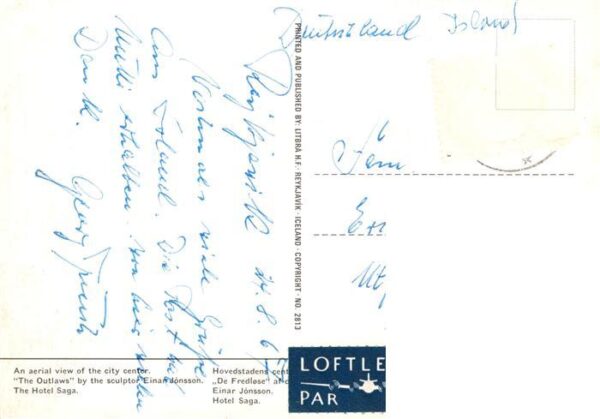 Deutschland Island
Reykjavik 24.8.6
viele Grüße
aus Island. Die Post hat
Mutti erhalten.
Dank. Georg
Fam.
PRINTED AND PUBLISHED BY: LITBRÁ H.F. · REYKJAVÍK · ICELAND · COPYRIGHT · NO. 2813
An aerial view of the city center.
"The Outlaws" by the sculptor Einar Jónsson.
The Hotel Saga.
Hovedstadens cent
„De Fredløse" af
Einar Jónsson.
Hotel Saga.
LOFTLE
PAR